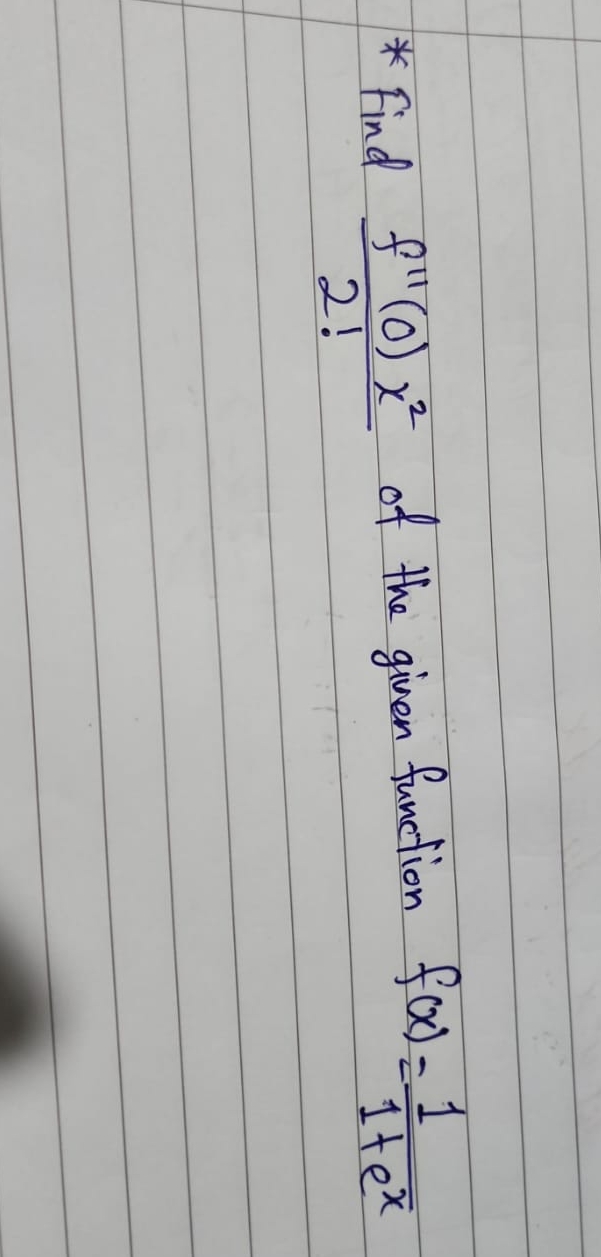 * Find f''(0) x² / 2! of the given function f(x) = 1 / 1+eˣ